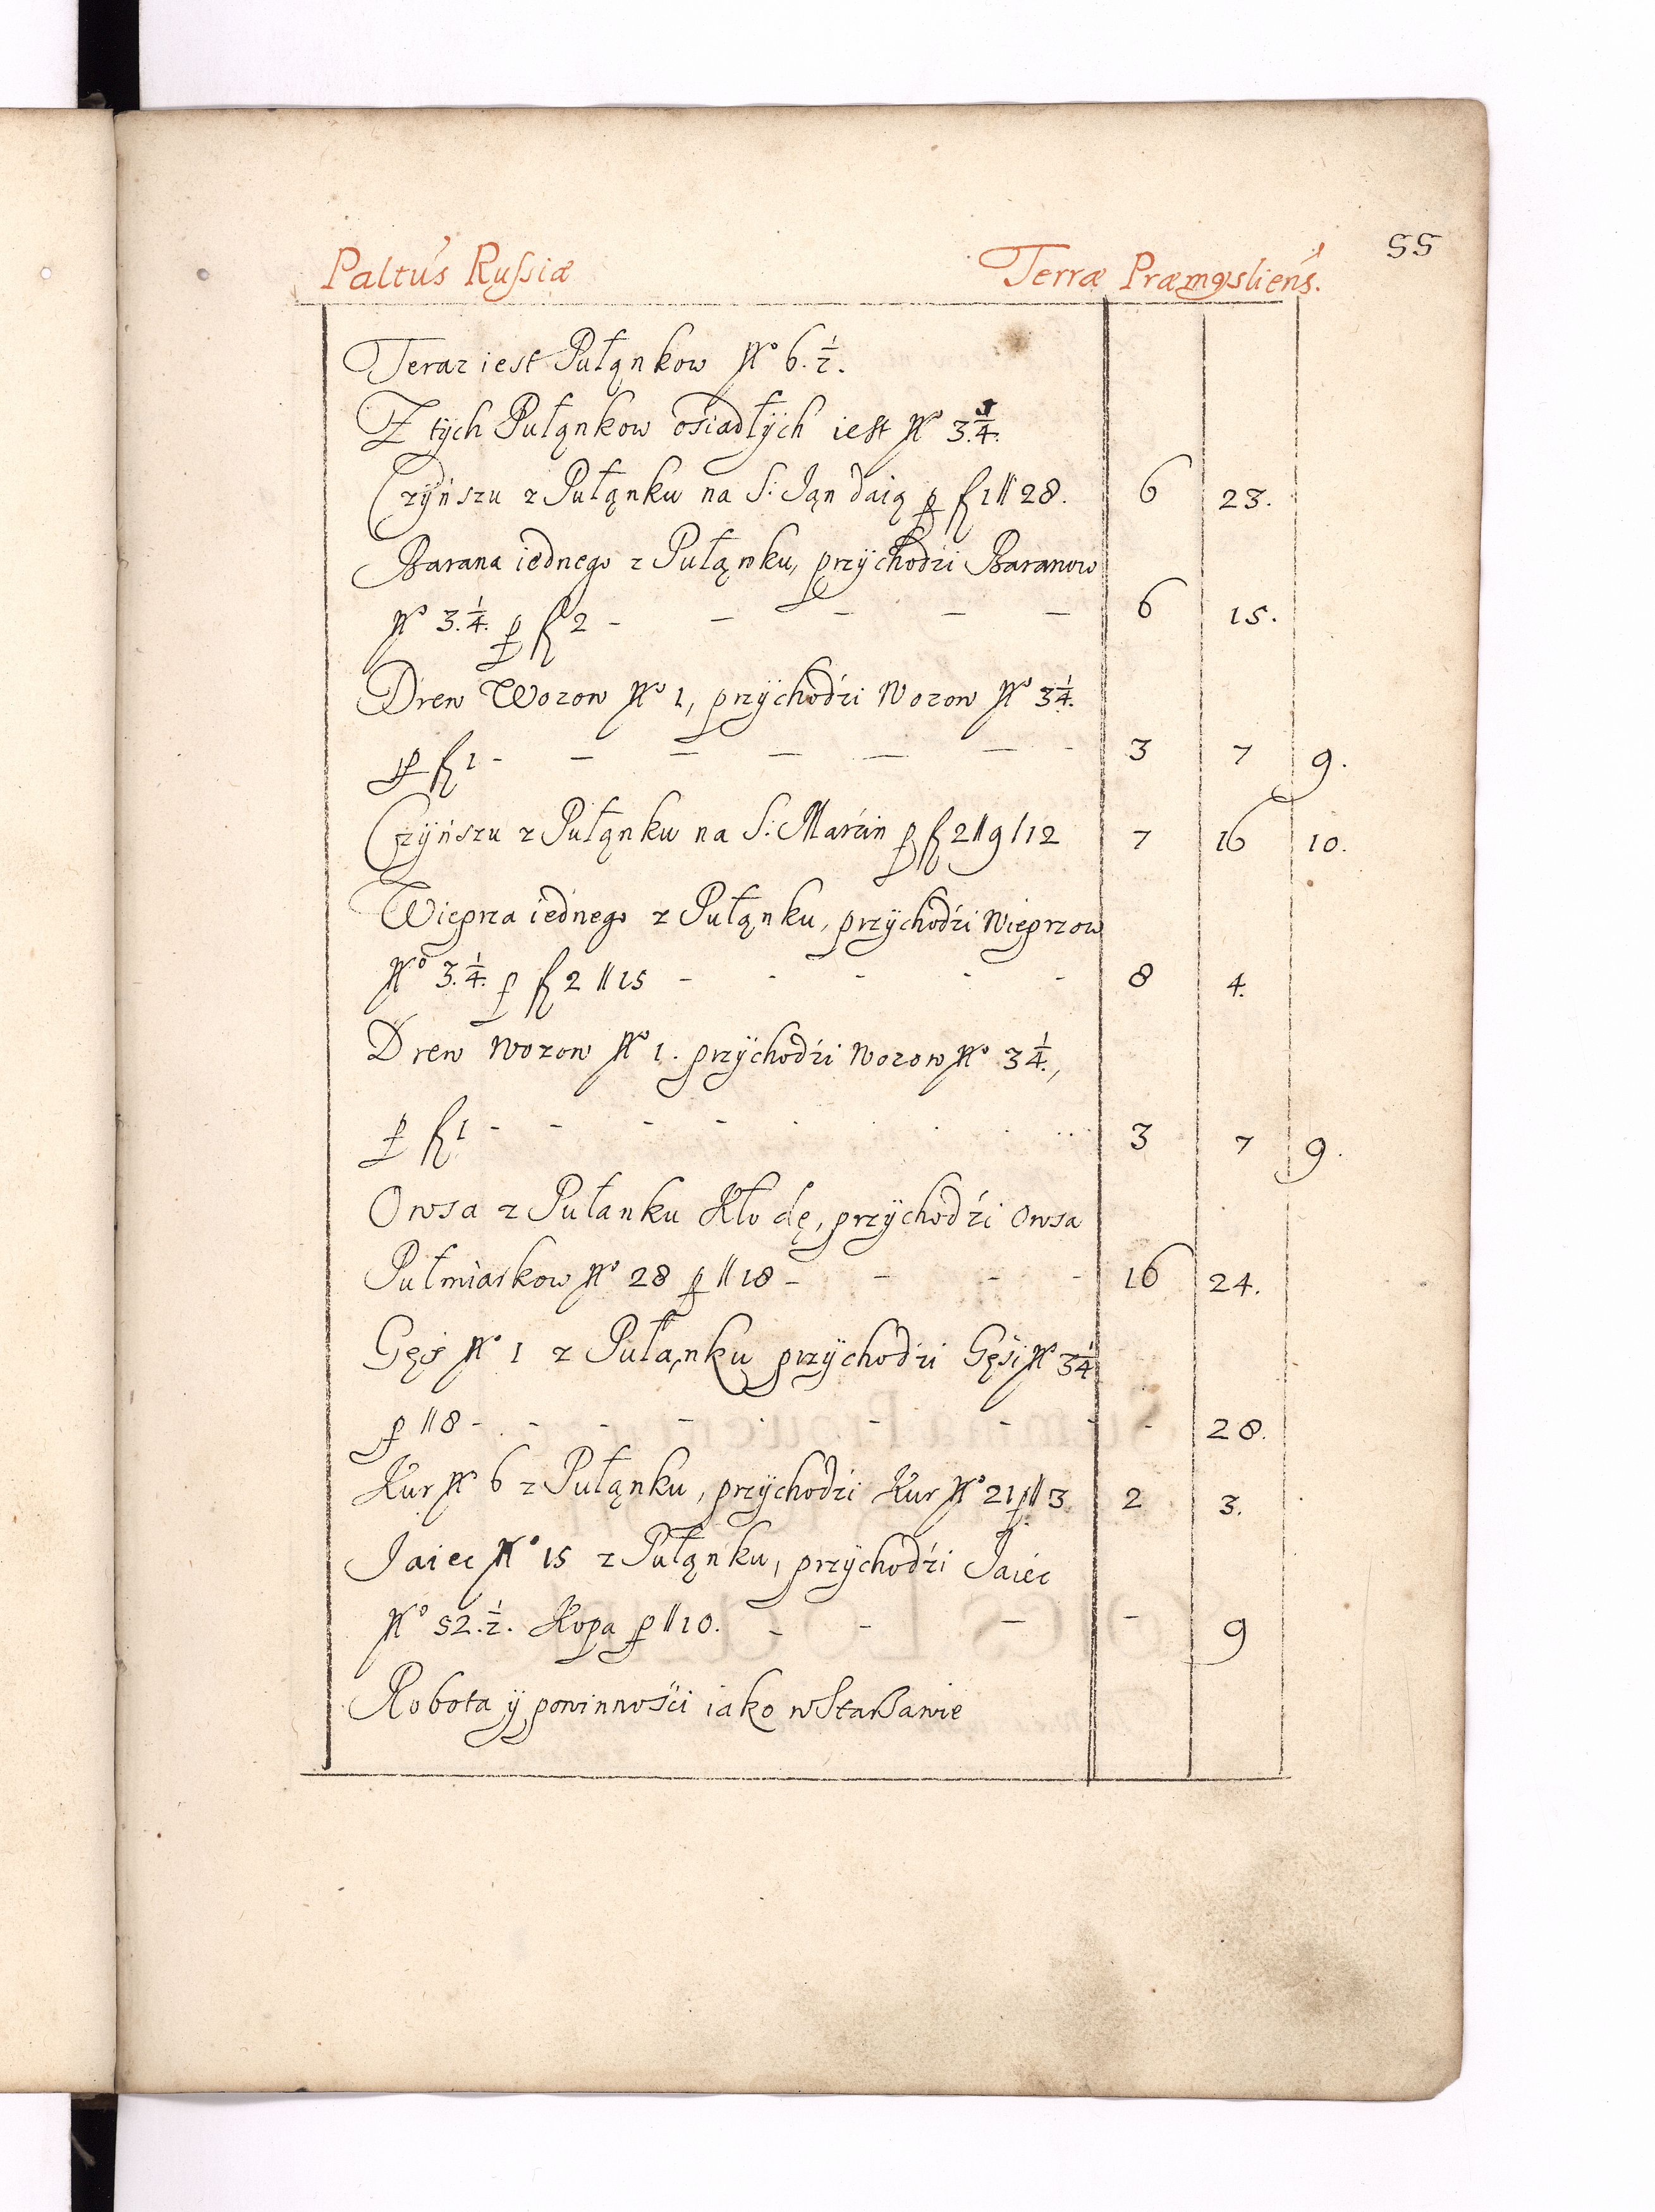 55
Paltus Russiæ Terræ Præmysliens.
Teraz iest Pułąnkow No 6. 1/2.
Z tÿch Pułąnkow ośiadłÿch iest No 3. 1/4.
Czÿńszu z Pułąnku na S: Ján daią p fl 1 ‖ 28. 6 23.
Barana iednego z Pułąnku, przÿchodzi Baranow
No 3. 1/4. p fl 2 - - - - - 6 15.
Drew Wozow No 1, przÿchodźi Wozow No 3 1/4.
p fl 1 - - - - - - - 3 7 9.
Czÿńszu z Pułąnku na S: Marćin p fl 2 ‖ 9 / 12 7 16 10.
Wieprza iednego z Pułąnku, przÿchodźi Wieprzow
No 3. 1/4. p fl 2 ‖ 15 - - - - - 8 4.
Drew Wozow No 1. przÿchodźi Wozow No 3 1/4.,
p fl 1 - - - - . . . . . . . 3 7 9.
Owsa z Pułanku Kłodę, przÿchodźi Owsa
Pułmiarkow No 28 p ‖ 18 - - - - 16 24.
Gęś No 1 z Pułąnku przÿchodźi Gęśi No 3 1/4
p ‖ 8 - - - - . - - - - 28.
Kur No 6 z Pułąnku, przÿchodźi Kur No 21 p ‖ 3 2 3.
Iaiec No 15 z Pułąnku, przÿchodźi Iaiec
No 52. 1/2. Kopa p ‖ 10. - - - - 9
Robota ÿ powinnośći iako w Starßawie